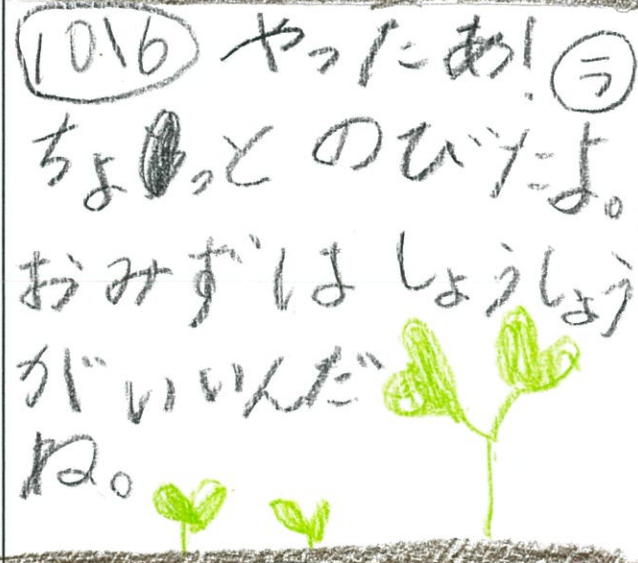 10.16 やったあ! ラ
ちょっと のびたよ。
おみずは しょうしょう
がいいんだ
ね。